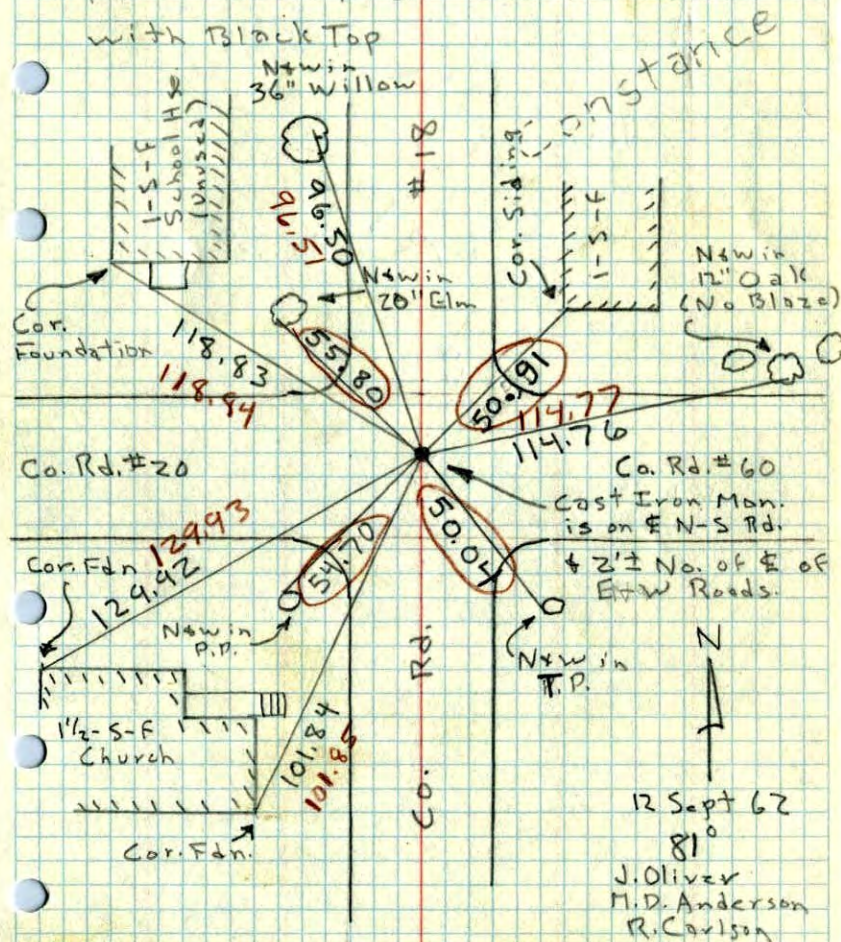 with Black Top
Constance
N&W in
36" Willow
#18
1-S-F
School Hse.
(Unused)
Cor. Siding
1-S-F
96.50
96.51
N&W in
20" Elm
N&W in
12" Oak
(No Blaze)
Cor.
Foundation
118.83
118.84
55.80
50.91
114.77
114.76
Co. Rd. #20
Co. Rd. #60
Cast Iron Mon.
is on ℄ N-S Rd.
& 2'± No. of ℄ of
E-W Roads.
129.93
129.92
Cor. Fdn.
54.70
50.04
N&W in
P.P.
N&W in
T.P.
N
1½-S-F
Church
101.84
101.85
Co. Rd.
Cor. Fdn.
12 Sept 62
81°
J. Oliver
M.D. Anderson
R. Carlson